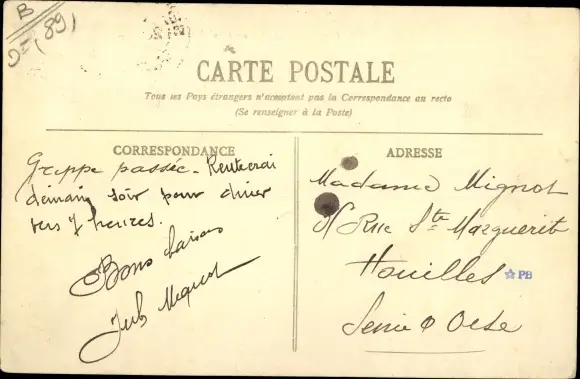 B
Dt (89)
CARTE POSTALE
Tous les Pays étrangers n'acceptent pas la Correspondance au recto
(Se renseigner à la Poste)
CORRESPONDANCE
Grippe passée. Rentrerai
demain soir pour diner
vers 7 heures.
Bons baisers
Jules Mignot
ADRESSE
Madame Mignot
Rue Ste Marguerite
Houilles
PB
Seine & Oise